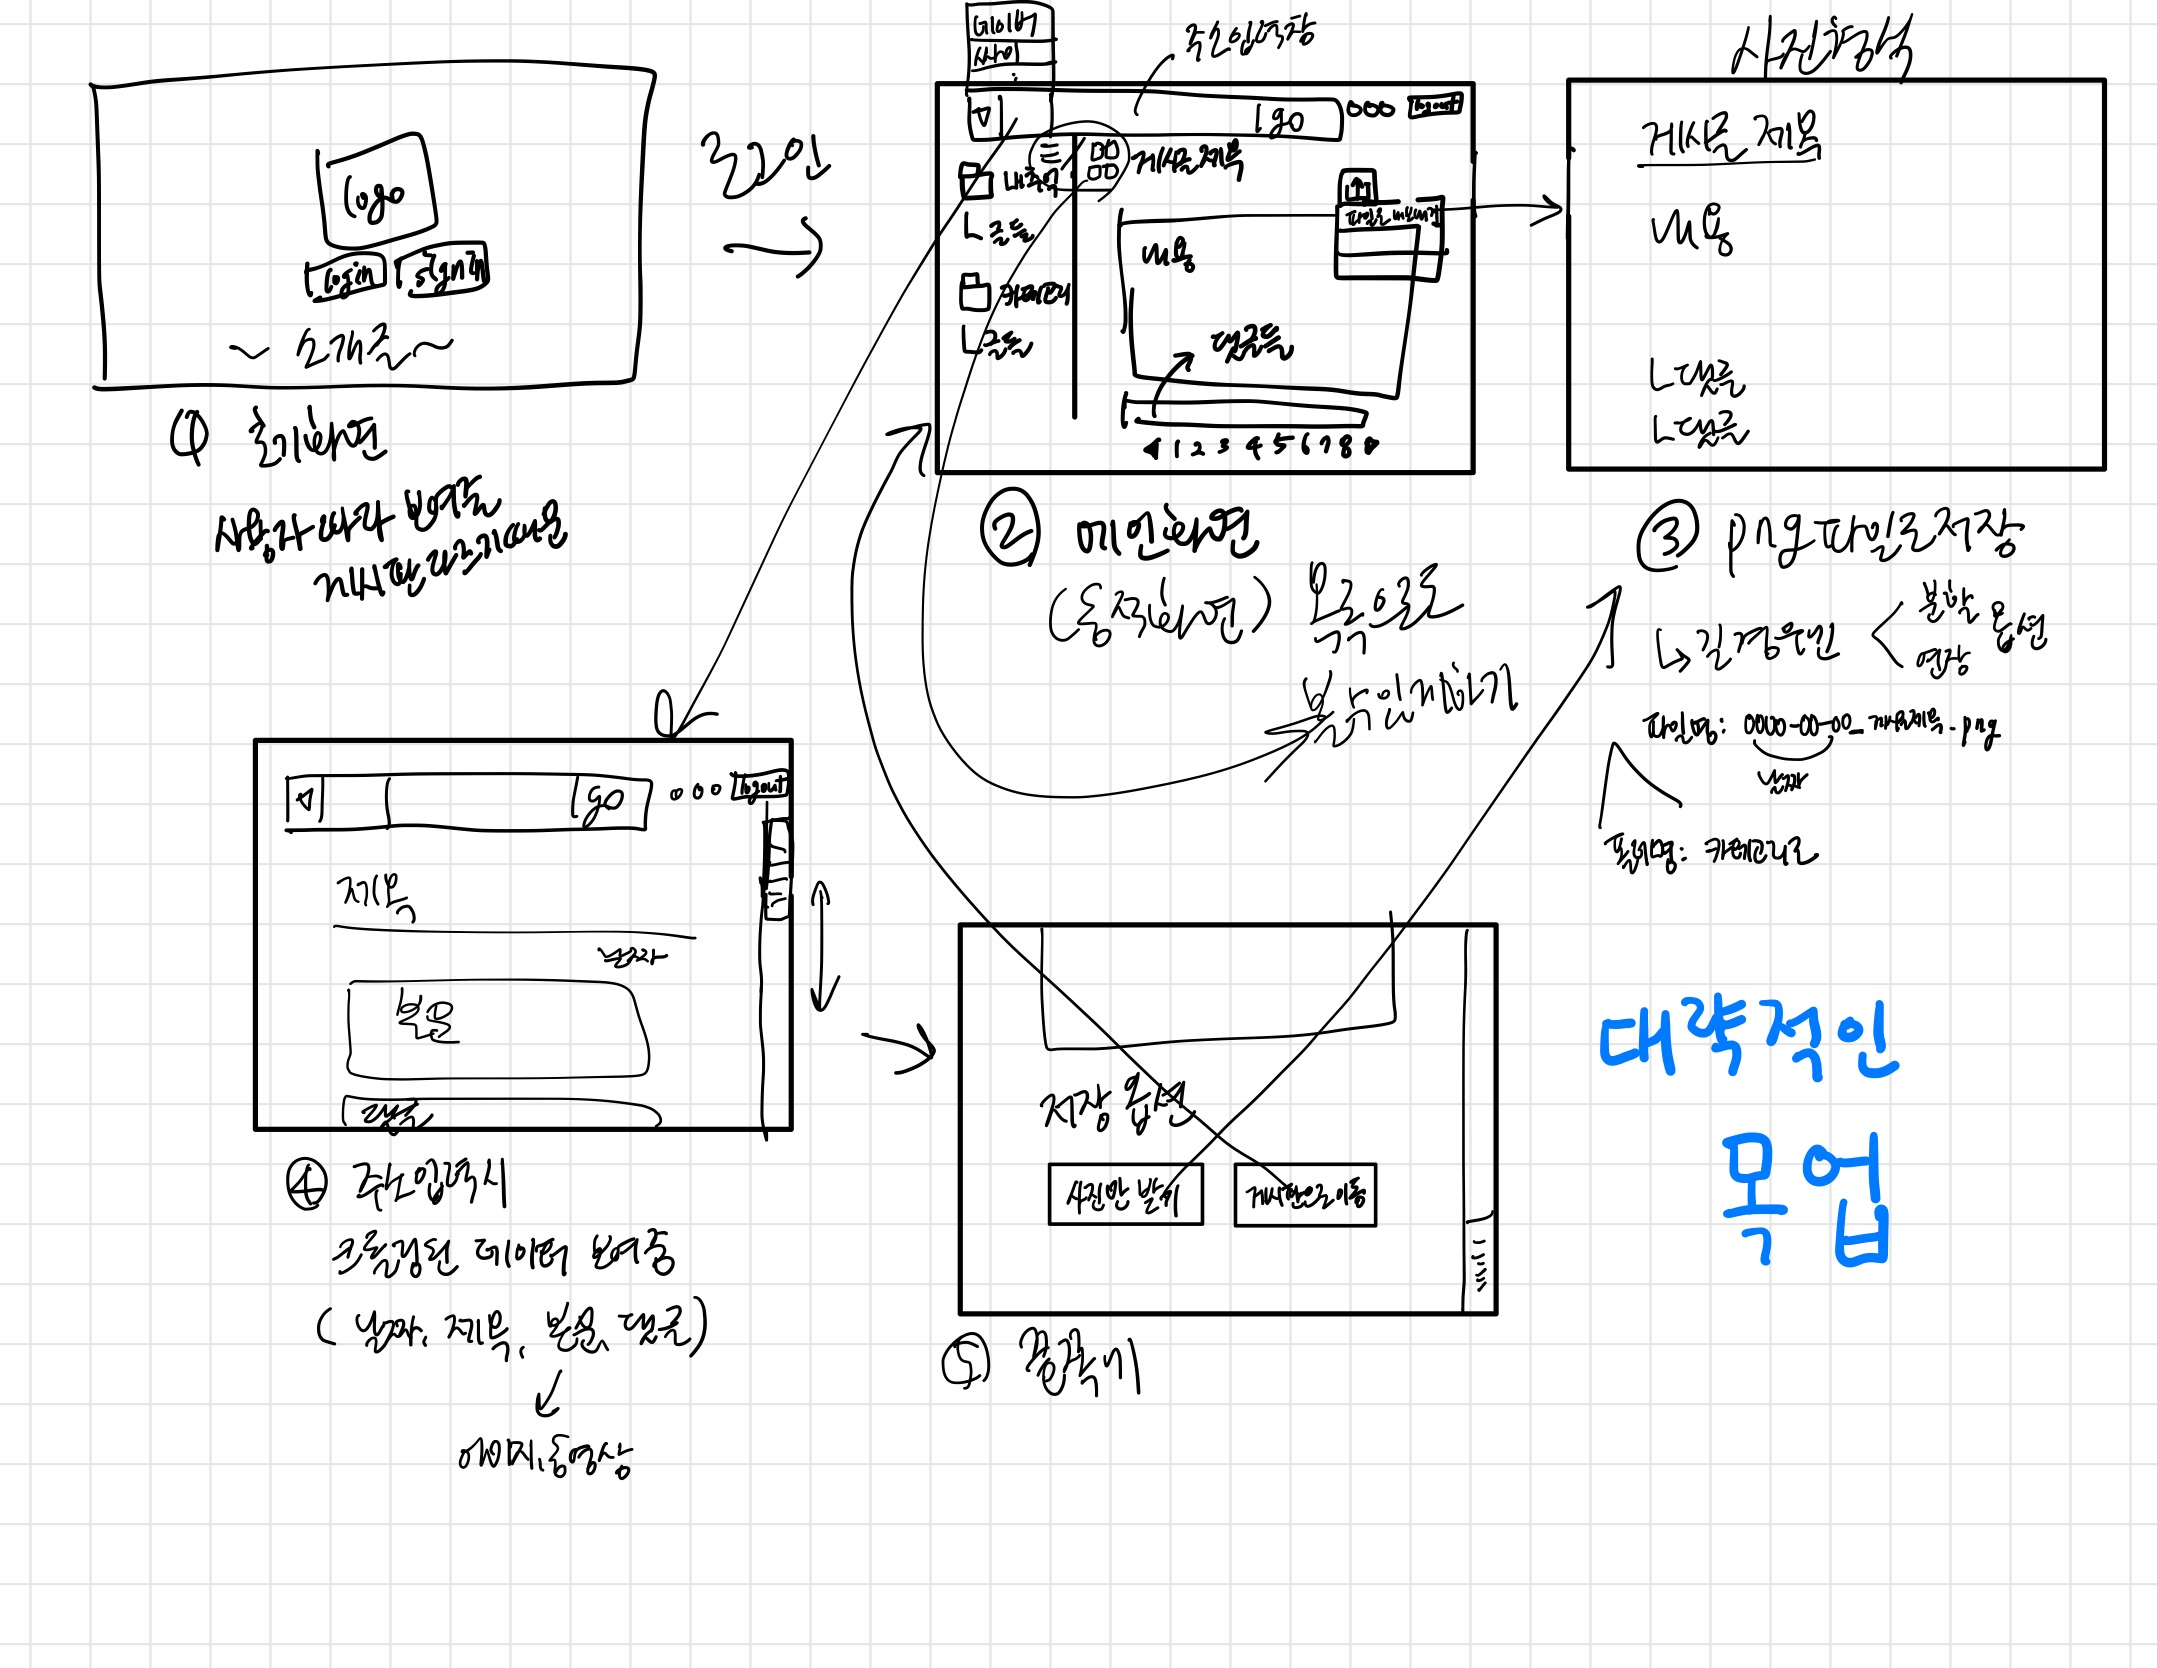 logo
login
signin
~ 소개글 ~
① 초기화면
사람마다 보여줄
게시판 다르기 때문
로그인
네이버
주소입력창
go
000
logout
내추억
ㄴ 글들
카테고리
ㄴ글들
게시글 제목
파일로 내보내기
내용
댓글들
◀ 1 2 3 4 5 6 7 8 ▶
② 메인화면
(동적화면)
목록으로
북마크인지하기
사진형식
게시글 제목
내용
ㄴ댓글
ㄴ댓글
③ png파일로저장
↳ 긴 경우엔 < 분할 연장 옵션
파일명: 0000-00-00_게시글제목.png
날짜
폴더명: 카테고리로
go
000
logout
제목
날짜
본문
댓글
④ 주소입력시
크롤링된 데이터 보여줌
(날짜, 제목, 본문, 댓글)
이미지, 동영상
저장 옵션
사진만 받기
게시판으로이동
⑤
대략적인
목업